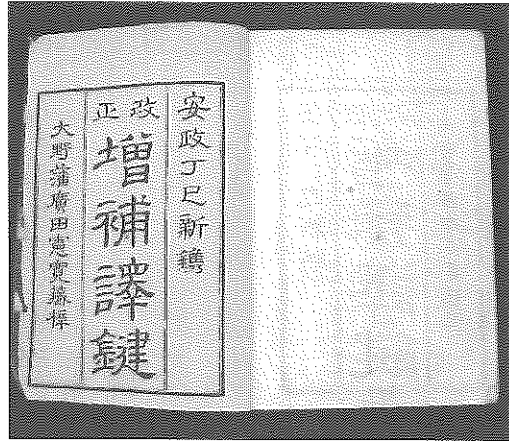 安政丁巳新鐫
改正
增補譯鍵
大野藩廣田憲寬㳟榟